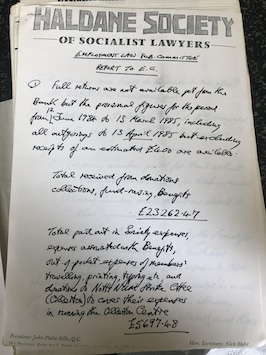 HALDANE SOCIETY
OF SOCIALIST LAWYERS
EMPLOYMENT LAW SUB-COMMITTEE
REPORT TO E.C.
① Full returns are not available yet from the
Bank but the provisional figures for the period
from 12 June 1984 to 13 March 1985, including
all outgoings to 13 April 1985 but excluding
receipts of an estimated £400 are available.
Total received from donations
collections, fund-raising Benefits
£23262.47
Total paid out in Society expenses,
expenses associated with Benefits,
out of pocket expenses of members'
travelling, printing, typing etc. and
donations to Notts Miners Strike Office
(Ollerton) to cover their expenses
in running the Ollerton Centre
£5697.48
President: John Platts Mills, Q.C.
Hon. Secretary: Nick Blake